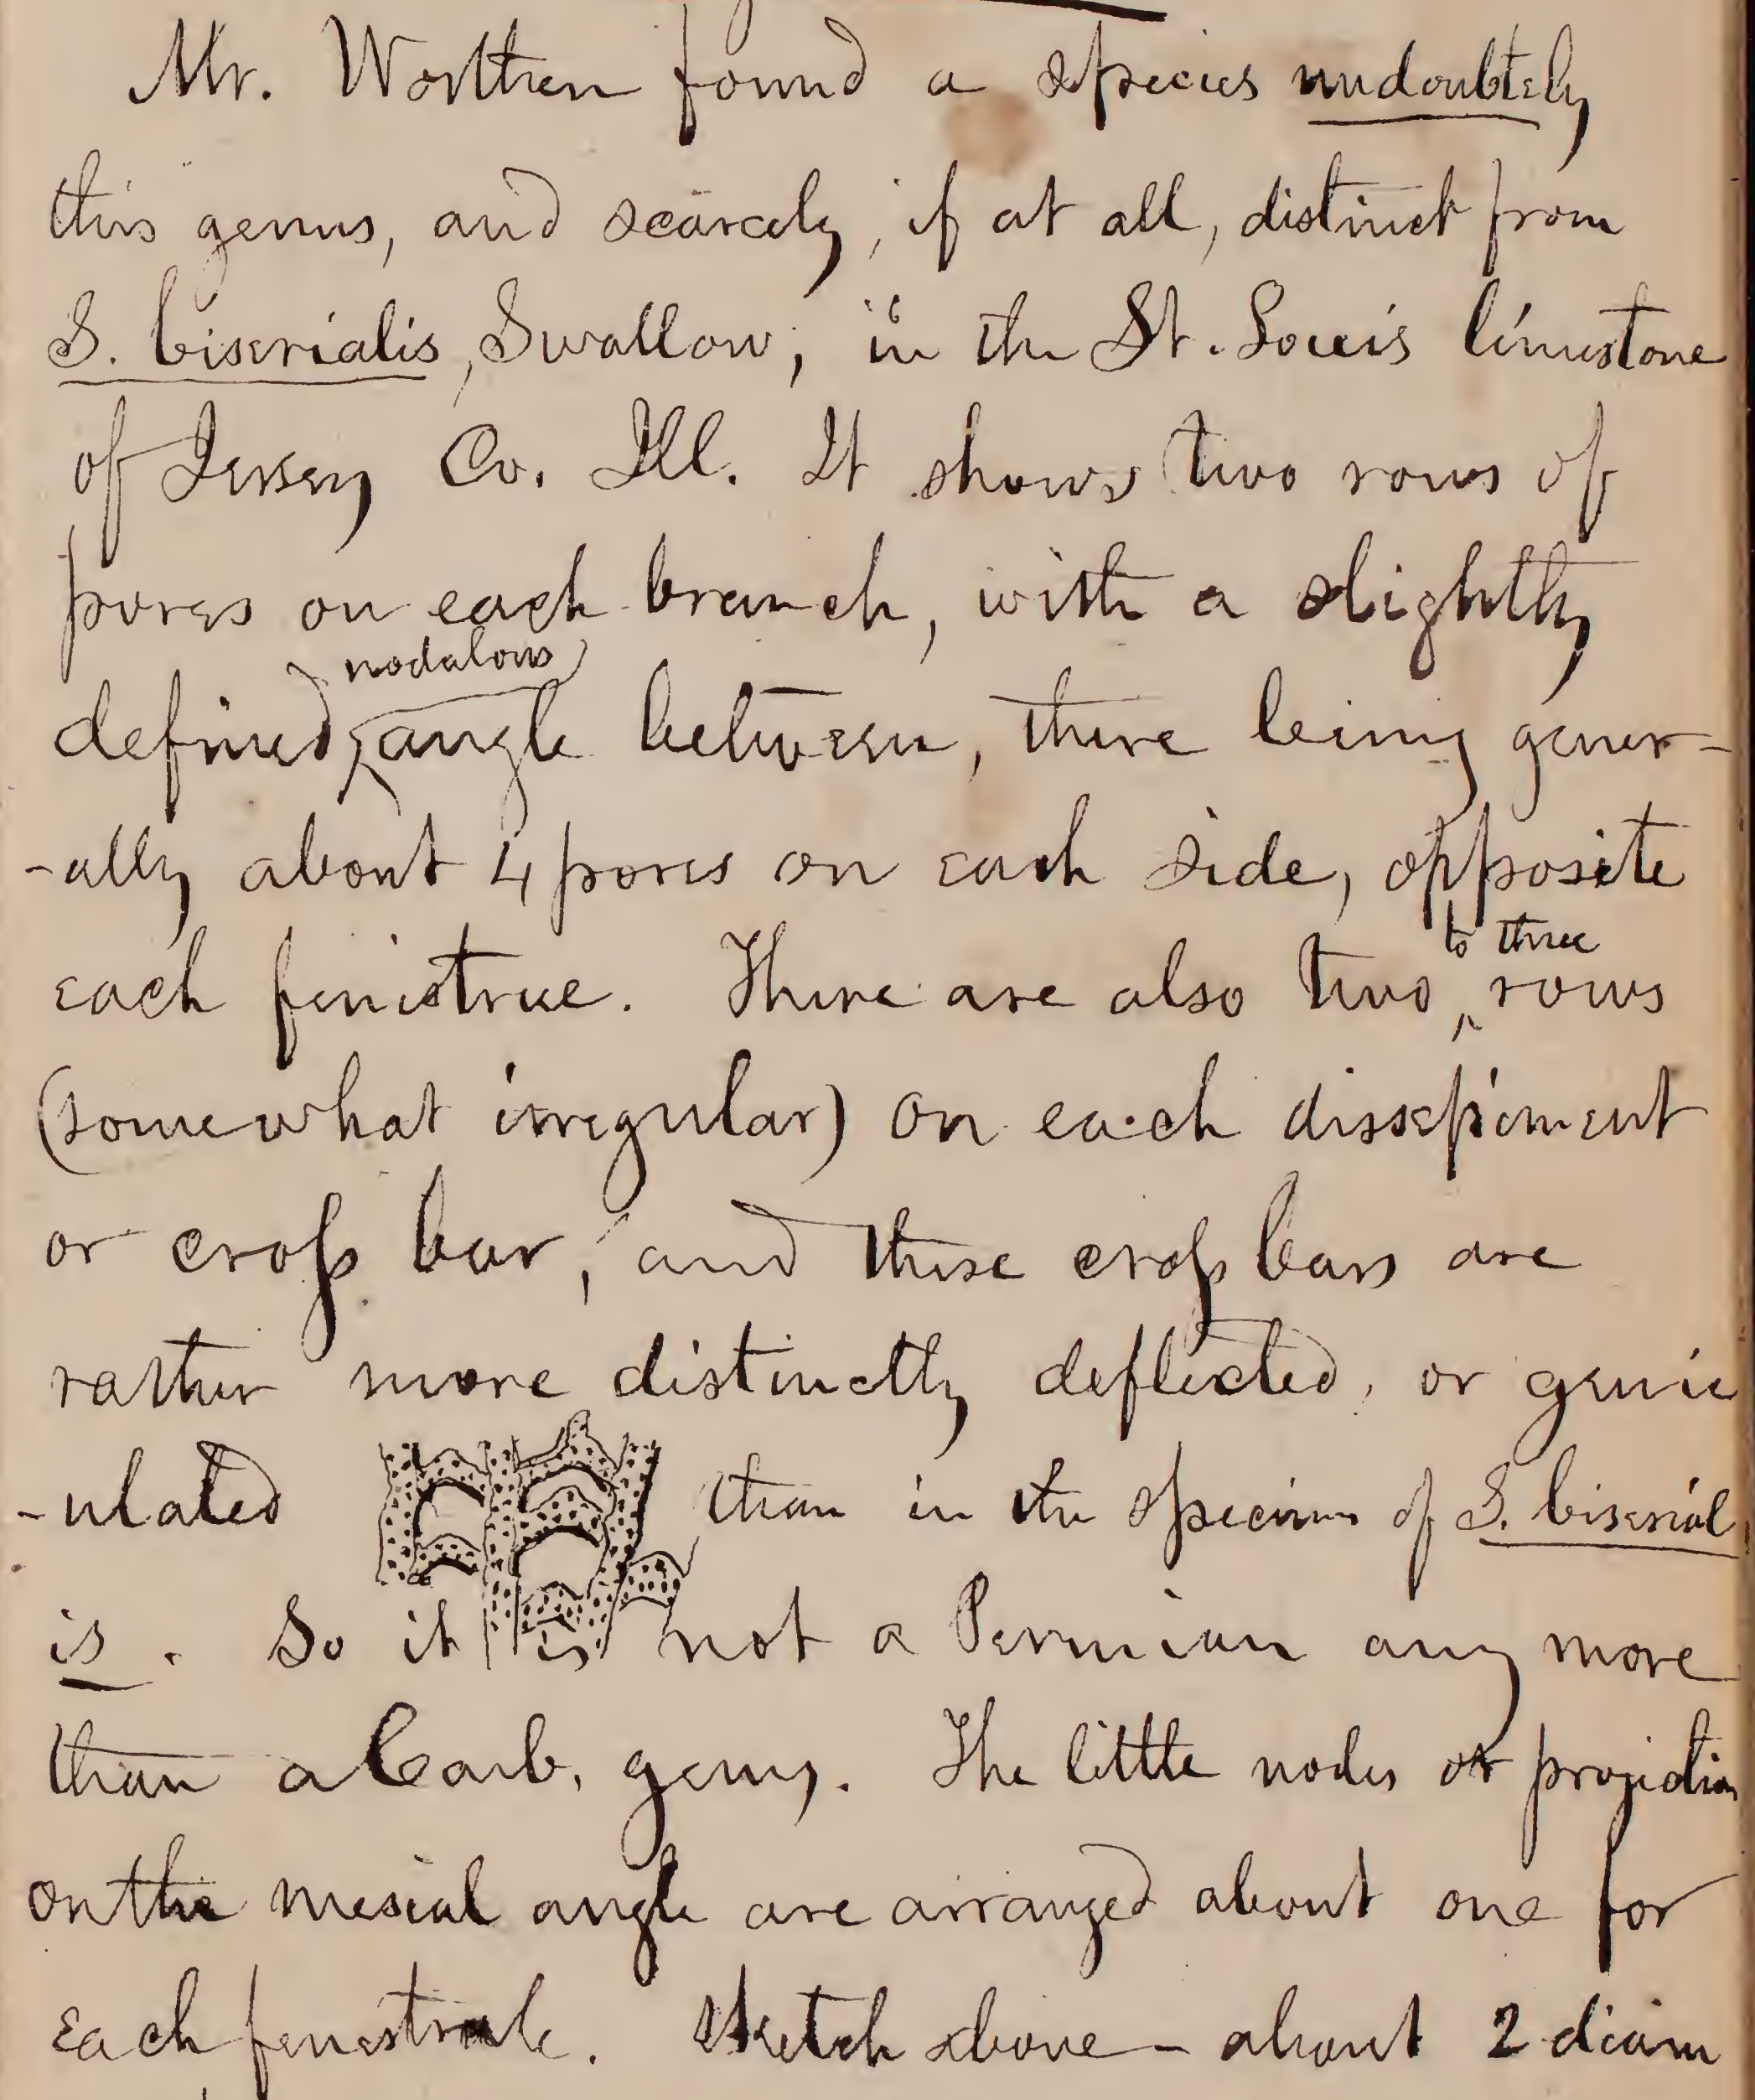 Mr. Worthen found a species undoubtely
this genus, and scarcely, if at all, distinct from
S. biserialis, Swallow, in the St. Louis limestone
of Jersey Co. Ill. It shows two rows of
pores on each branch, with a slightly
nodulous
defined angle between, there being gener-
-ally about 4 pores on each side, opposite
to three
each fenistrue. There are also two rows
(somewhat irregular) on each dissepiment
or cross bar, and these cross bars are
rather more distinctly deflected, or genic
-ulated than in the specimen of S. biserial
is. So it is not a Permian any more
than a Carb. genus. The little nodes or projection
on the mesial angle are arranged about one for
each fenestrule. Sketch above - about 2 diam